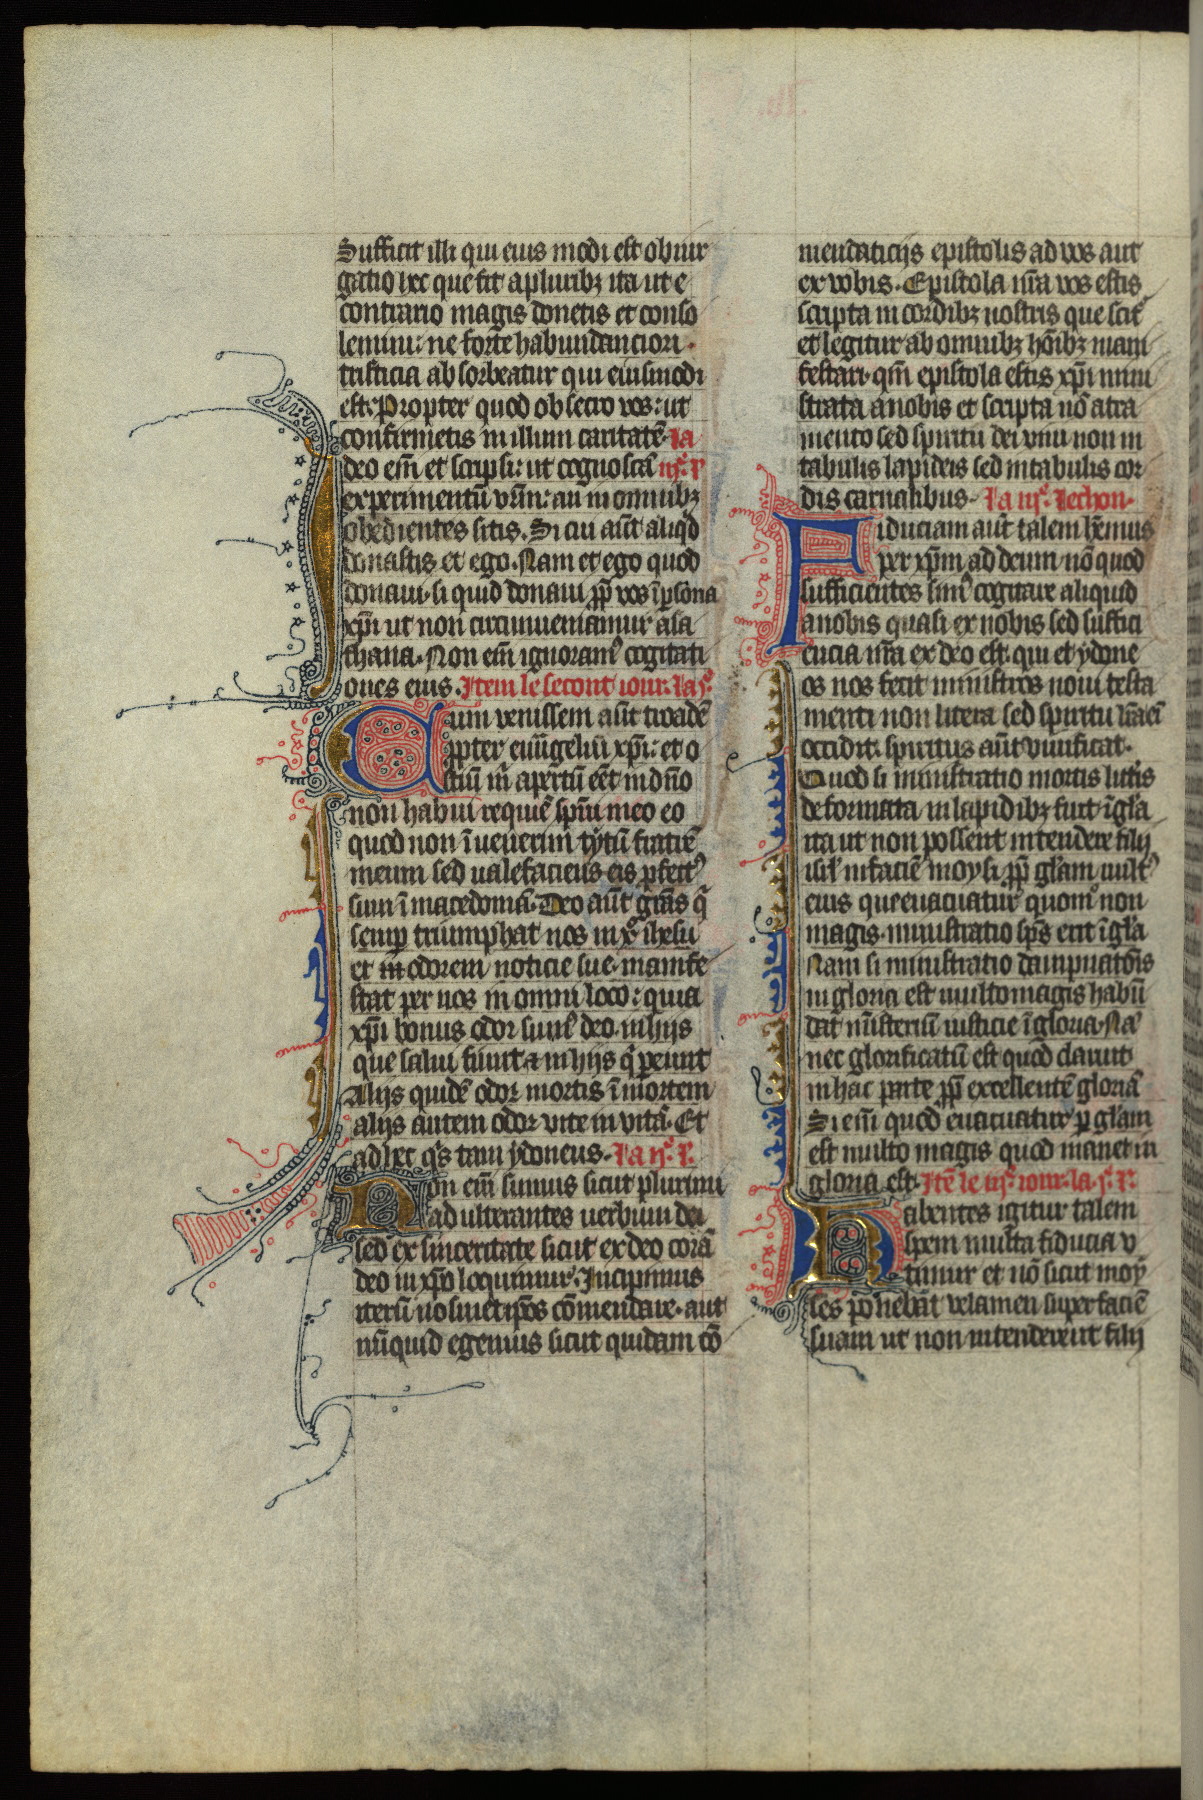 Sufficit illi qui eius modi est obiur
gatio hec que fit a pluribꝫ ita ut e
contrario magis donetis et conso
lemini: ne forte habundanciori
tristicia absorbeatur qui eiusmodi
est. Propter quod obsecro vos: ut
confirmetis in illum caritatē. La
Ideo em̄ et scripsi: ut cognoscā iijͤ. P
experimentū vr̄m: an in omnibꝫ
obedientes sitis. Si cui aūt aliqͥd
donastis et ego. Nam et ego quod
donaui. si quid donaui ꝓp̄ vos ī ꝑsona
xp̄i ut non circumueniamur a sa
thana. Non em̄ ignoramꝰ cogitati
ones eius. Item le secont iour. La jͤ.
Cum venissem aūt troadē
ꝓpter euuāgeliū xp̄i: et o
stiū m̄ apertū eēt in dn̄o
non habui requiē spūi meo eo
quod non īuenerim tytū fratrē
meum sed ualefaciens eis ꝓfectꝰ
sum ī macedoniā. Deo aūt gr̄as qͥ
semꝑ triumphat nos in xͦ ihesu
et in odorem noticie sue. manife
stat per nos in omni loco: quia
xp̄i bonus odor sumꝰ deo. in hijs
que salui fiunt & in hijs qͥ pereunt
Alijs quidē odor mortis ī mortem
alijs autem odor vite in vitā. Et
ad hec qͥs tam ydoneus. La ijͤ. P.
Non em̄ sumus sicut plurimi
adulterantes uerbum dei
sed ex sinceritate sicut ex deo corā
deo in xp̄o loquimur. Incipimus
iterū nosmetip̄os cōmendare. aut
nūquid egemus sicut quidam cō
mendaticijs epistolis ad vos aut
ex vobis. Epistola nr̄a vos estis
scripta in cordibꝫ nostris que scit᷑
et legitur ab omnibꝫ hōibꝫ mani
festari. qm̄ epistola estis xp̄i mini
strata a nobis et scripta nō atra
mento sed spiritu dei viui non in
tabulis lapideis sed in tabulis cor
dis carnalibus. La iijͤ. lechon.
Fiduciam aūt talem hēmus
per xp̄m ad deum. nō quod
sufficientes simꝰ cogitare aliquid
a nobis quasi ex nobis sed suffici
encia nr̄a ex deo est. qui et ydone
os nos fecit ministros noui testa
menti non litera sed spiritu lr̄a em̄
occidit. spiritus aūt viuificat.
Quod si ministratio mortis litīs
deformata in lapidibꝫ fuit ī gla
ita ut non possent intendere filij
isrl̄ in faciē moysi ꝓp̄ gl̄am uultꝰ
eius que euacuatur quomͦ non
magis. ministratio sp̄s erit ī gl̄a
Nam si ministratio dampnatōis
in gloria est multo magis habū
dat m̄isteriū iusticie ī gloria. Nā
nec glorificatū est quod claruit
in hac parte ꝓp̄ excellentē gloriā
Si em̄ quod euacuatur ꝑ gl̄am
est multo magis quod manet in
gloria est. Itē le iijͤ. iour. la jͤ. P.
Habentes igitur talem
spem multa fiducia v
timur et nō sicut moy
ses ponebat velamen super faciē
suam ut non intenderent filij